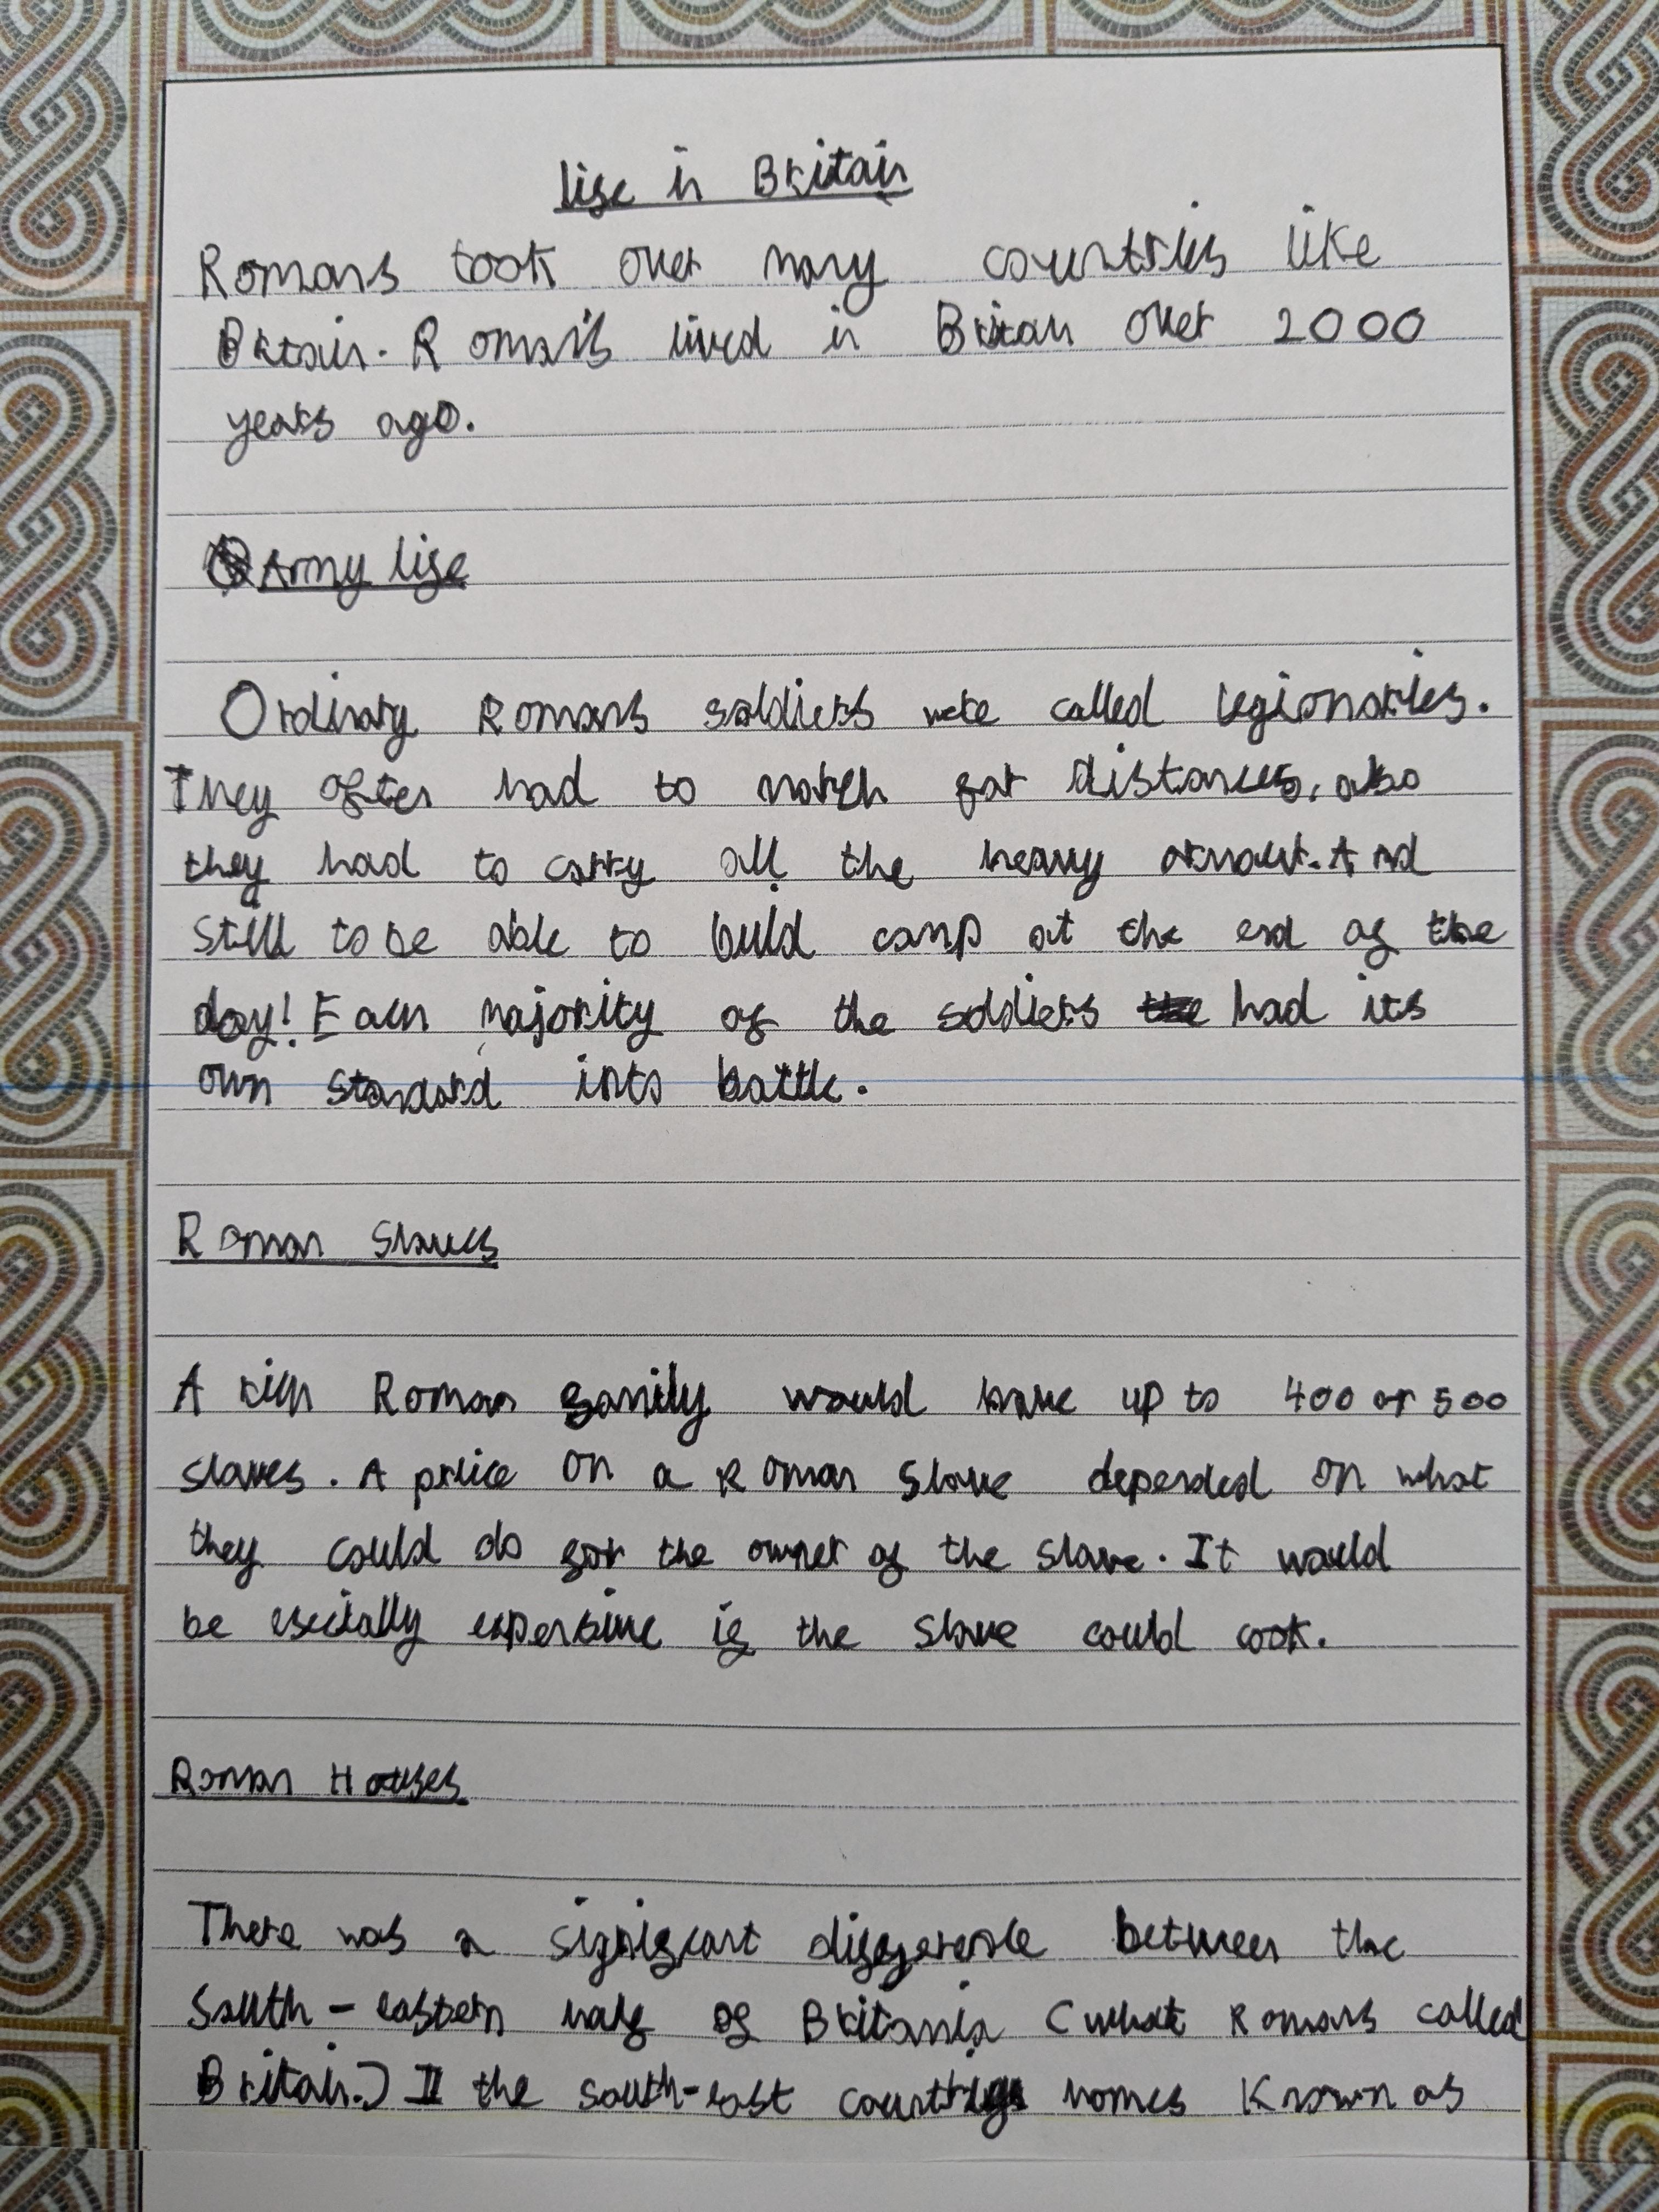 life in Britain
Romans took over many countries like
Britain. Romans lived in Britain over 2000
years ago.
Army life
Ordinary Romans soldiers were called legionaries.
They often had to march far distances, also
they had to carry all the heavy armour. And
still to be able to build camp at the end of the
day! Each majority of the soldiers had its
own standard into battle.
Roman Slaves
A rich Roman family would have up to 400 or 500
slaves. A price on a Roman slave depended on what
they could do for the owner of the slave. It would
be esecially expensive if the slave could cook.
Roman Houses
There was a significant difference between the
South-eastern half of Britannia (what Romans called
Britain.) In the south-east country homes known as